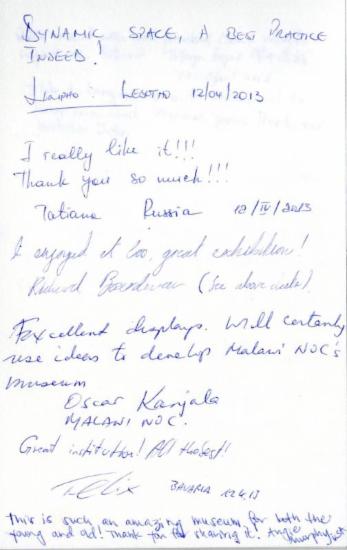 DYNAMIC SPACE, A BEST PRACTICE
INDEED!
LESOTHO 12/04/2013
I really like it!!!
Thank you so much!!!
Tatiana Russia 12/IV/2013
I enjoyed it too, great exhibition!
Richard (See above date).
Excellent displays. Will certainly
use ideas to develop Malawi NOC's
museum
Oscar Kanjala
MALAWI NOC.
Great institution! All the best!
Felix BAVARIA 12.4.13
This is such an amazing museum for both the
young and old! Thank you for sharing it. Angie